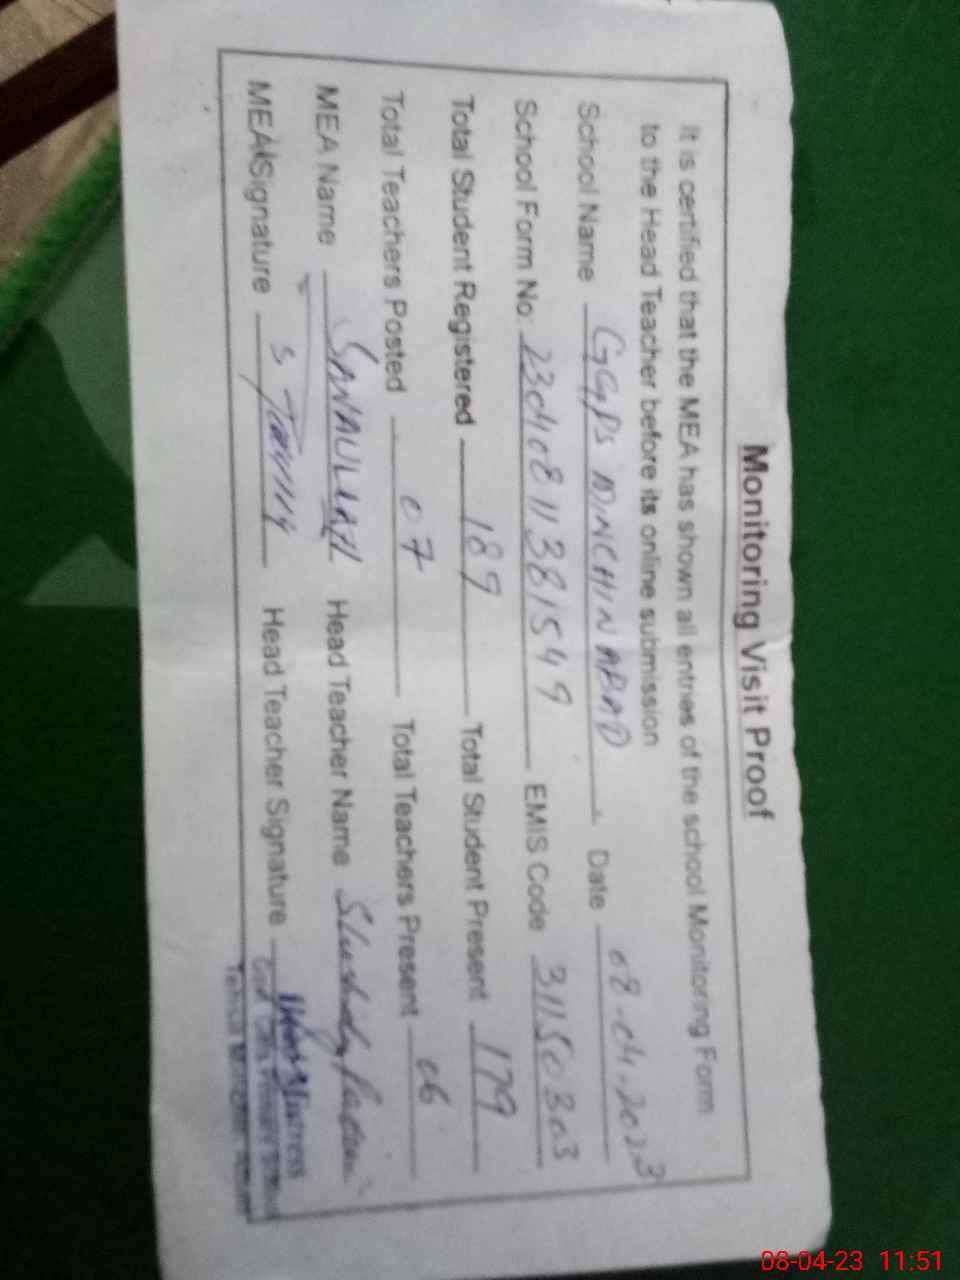 Monitoring Visit Proof
It is certified that the MEA has shown all entries of the school Monitoring Form
to the Head Teacher before its online submission
School Name GGPS MINCHINABAD. Date 08-04-2023
School Form No. 23040811381549 EMIS Code 31150303
Total Student Registered 189 Total Student Present 179
Total Teachers Posted 07 Total Teachers Present 06
MEA Name SANAULLAH Head Teacher Name
MEA Signature Head Teacher Signature
08-04-23 11:51